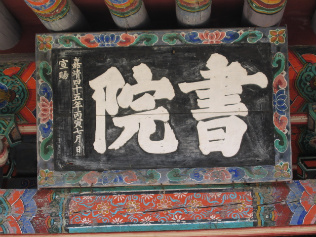 書院
嘉靖四十五年丙寅七月 日
宣賜